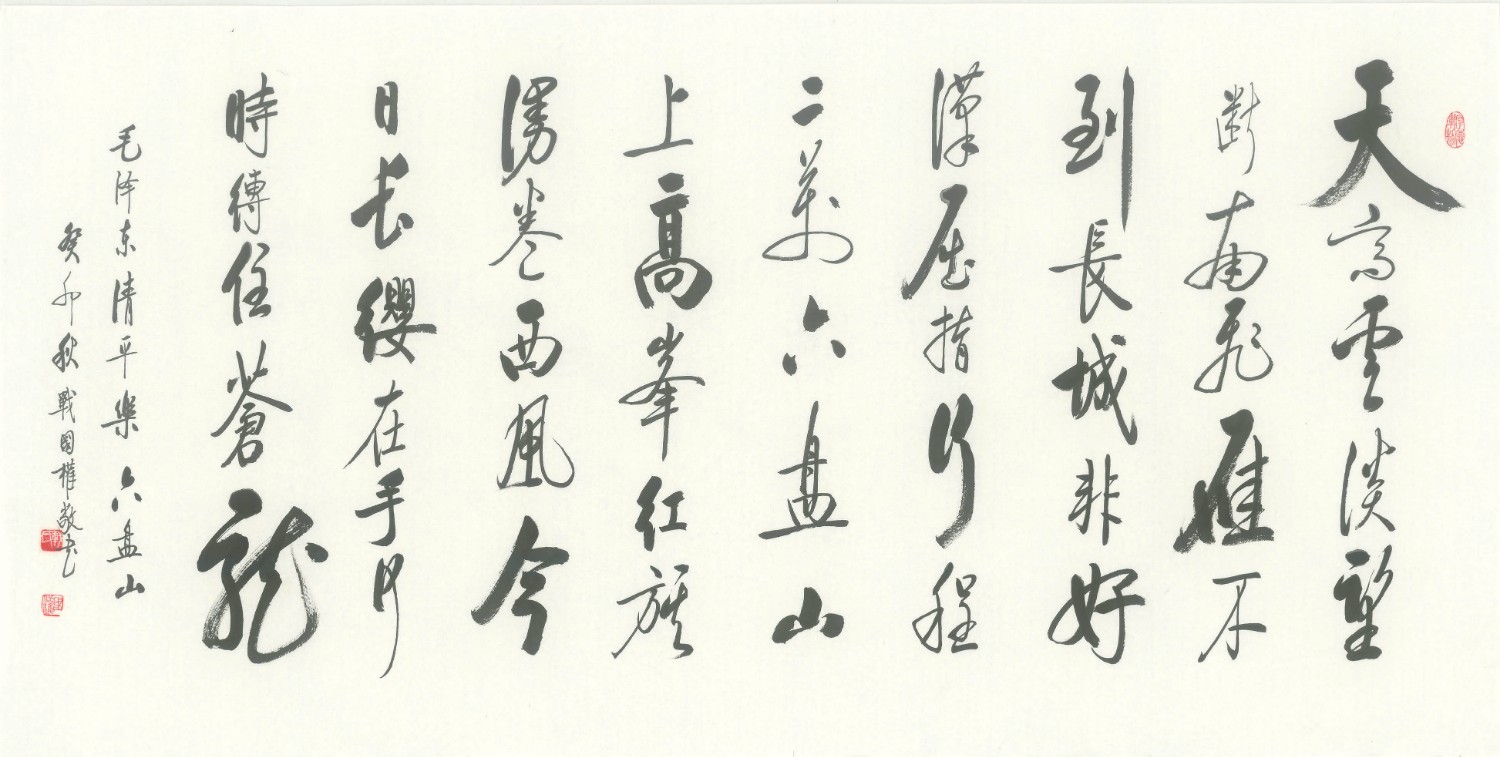 天高雲淡望
断南飛雁不
到長城非好
漢屈指行程
二萬六盘山
上高峯红旗
漫卷西風今
日长纓在手何
時縛住蒼龍
毛泽东清平樂六盘山
癸卯秋戰國權敬书